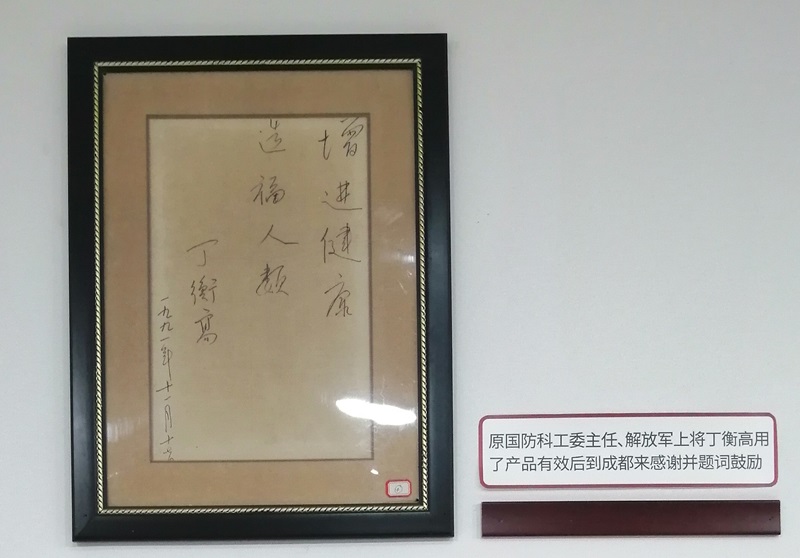 增进健康
造福人類
丁衡高
一九九一年十一月十
原国防科工委主任、解放军上将丁衡高用
了产品有效后到成都来感谢并题词鼓励